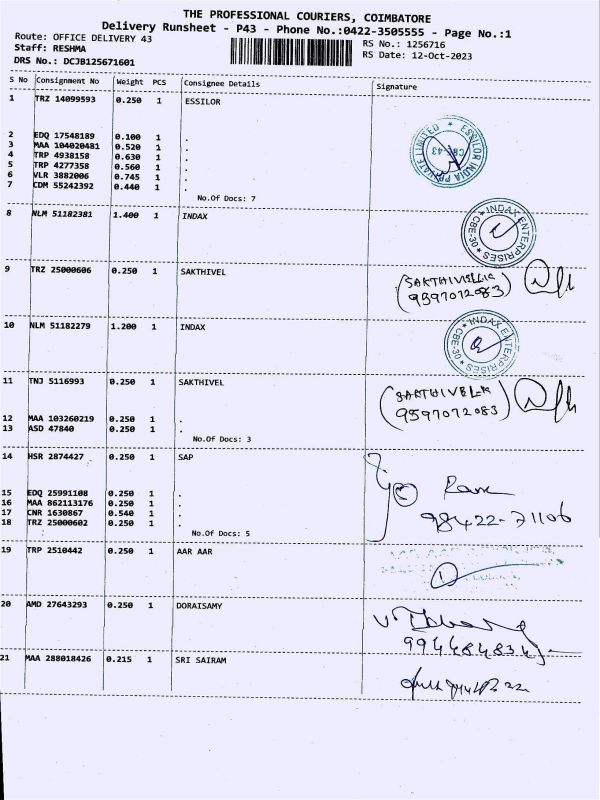 THE PROFESSIONAL COURIERS, COIMBATORE
Delivery Runsheet - P43 - Phone No.:0422-3505555 - Page No.:1
Route: OFFICE DELIVERY 43
RS No.: 1256716
Staff: RESHMA
RS Date: 12-Oct-2023
DRS No.: DCJB125671601
S No Consignment No Weight PCS Consignee Details Signature
1 TRZ 14099593 0.250 1 ESSILOR
ESSILOR INDIA PRIVATE LIMITED ★ CBE-43
2 EDQ 17548189 0.100 1 .
3 MAA 104020481 0.520 1 .
4 TRP 4938158 0.630 1 .
5 TRP 4277358 0.560 1 .
6 VLR 3882006 0.745 1 .
7 CDM 55242392 0.440 1 .
No.Of Docs: 7
8 NLM 51182381 1.400 1 INDAX
★ INDAX ENTERPRISES ★ CBE-30
9 TRZ 25000606 0.250 1 SAKTHIVEL
(SAKTHIVELK
9597072083)
10 NLM 51182279 1.200 1 INDAX
★ INDAX ENTERPRISES ★ CBE-30
11 TNJ 5116993 0.250 1 SAKTHIVEL
(SAKTHIVELK
9597072083)
12 MAA 103260219 0.250 1 .
13 ASD 47840 0.250 1 .
No.Of Docs: 3
14 HSR 2874427 0.250 1 SAP
15 EDQ 25991108 0.250 1 .
16 MAA 862113176 0.250 1 .
17 CNR 1630867 0.540 1 .
18 TRZ 25000602 0.250 1 .
98422-71106
No.Of Docs: 5
19 TRP 2510442 0.250 1 AAR AAR
20 AMD 27643293 0.250 1 DORAISAMY
21 MAA 288018426 0.215 1 SRI SAIRAM